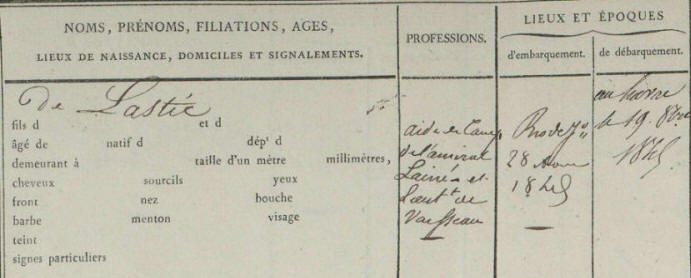 NOMS, PRÉNOMS, FILIATIONS, AGES,
LIEUX DE NAISSANCE, DOMICILES ET SIGNALEMENTS.
PROFESSIONS.
LIEUX ET ÉPOQUES
d'embarquement.
de débarquement.
de Lastic
fils d et d
âgé de natif d dép.t d
demeurant à taille d'un mètre millimètres,
cheveux sourcils yeux
front nez bouche
barbe menton visage
teint
signes particuliers
aide de Camp
de l'amiral
Lainé et
Lieut.t de
Vaisseau
Rio de J.o
28
le 19. 8bre